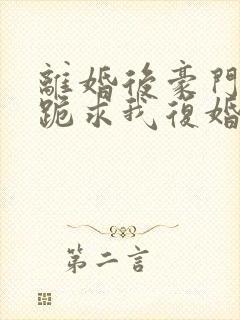 離婚後豪門
跪求我復婚
第二言